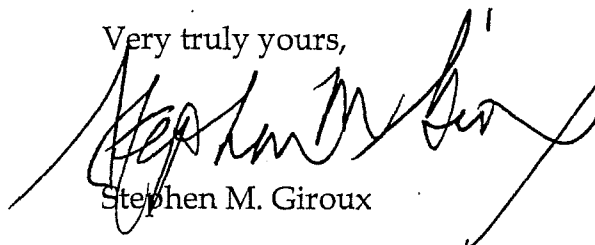 Very truly yours,
Stephen M Giroux
Stephen M. Giroux